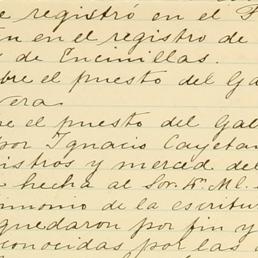 e registró en el F
en el registro de
de Encinillas.
bre el puesto del Ga
vera
re el puesto del Gal
por Ignacio Cayetan
istros y merced del
hecha al Sor. Dn. Ml.
timonio de la escritu
quedaron por fin y
conocidas por las